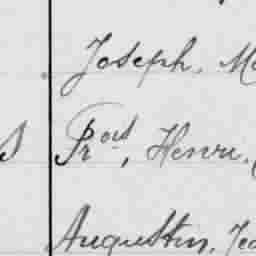 Joseph, Ma
S Frois, Henri,
Augustin, Jea